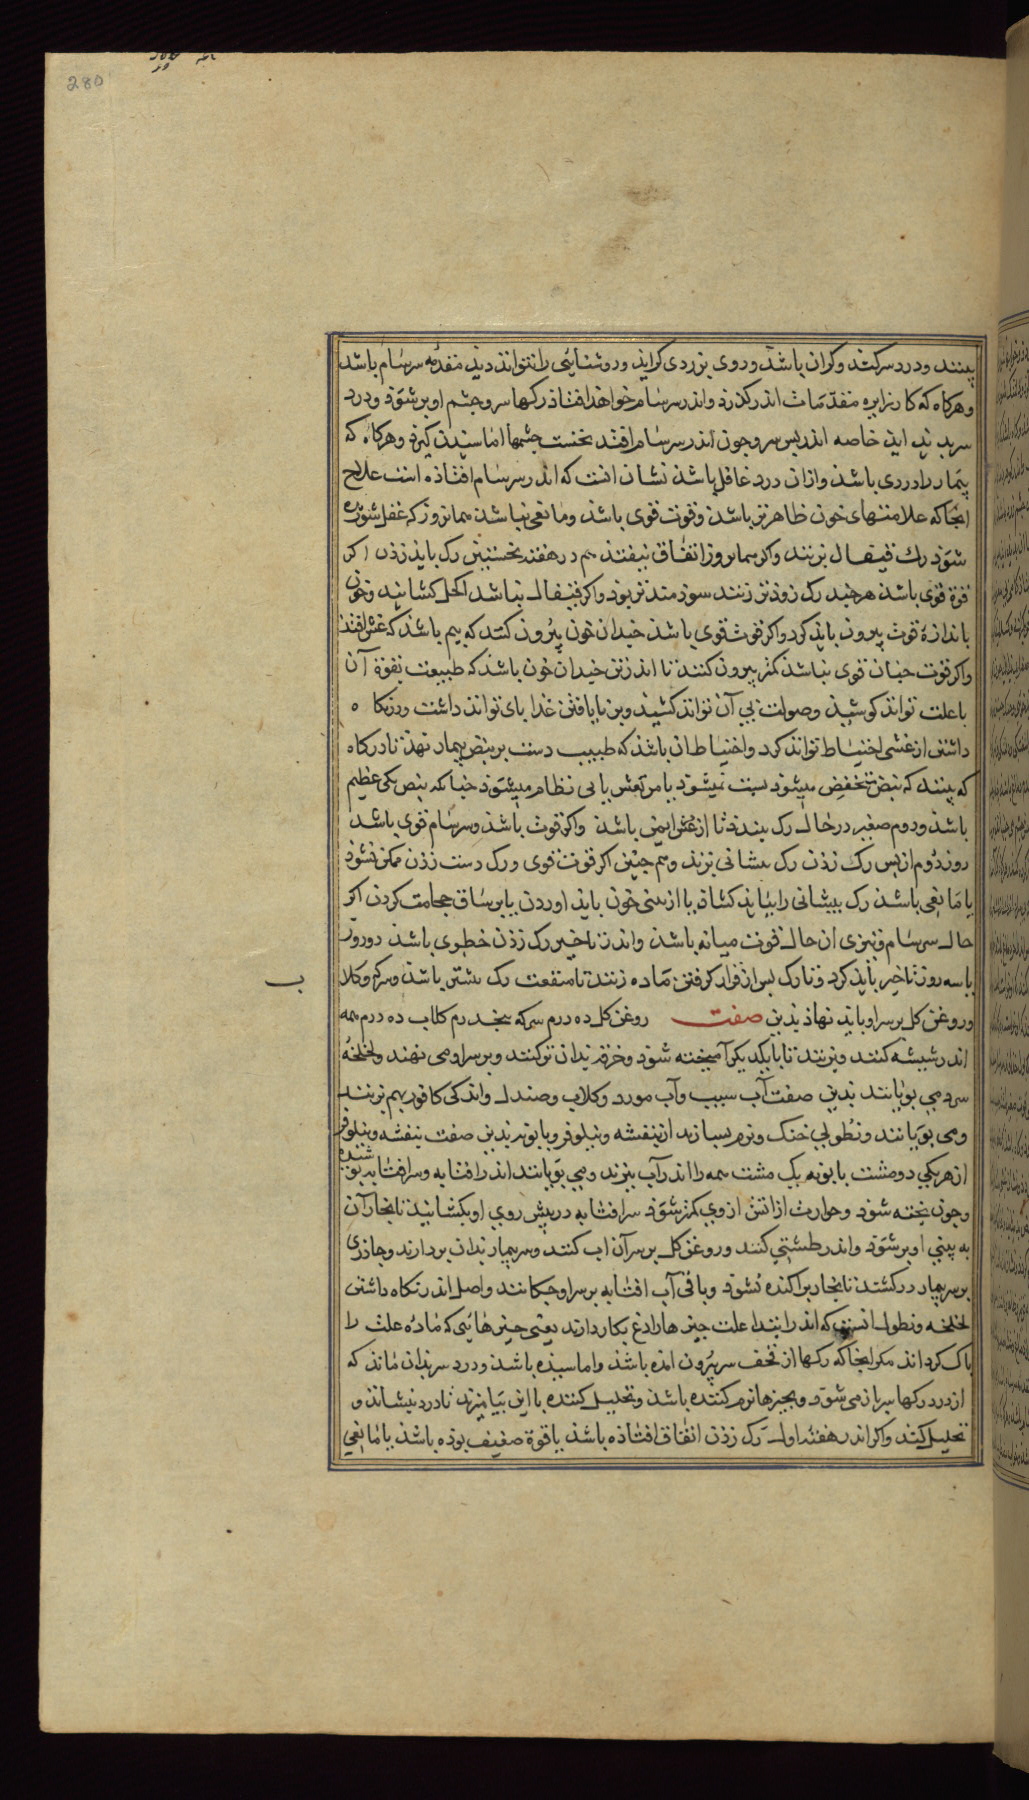 280
بینند ودرد سر کند وکران باشد وروی بزردی کراید وروشنایی را نتواند دید مقدمه سرسام باشد
وهرکاه که کار بر این مقدمات اندر کذرد واندر سرسام خواهد افتاد رکها سر وچشم او بر شود ودرد
سر بدید اید خاصه اندر بس سر وجون اندر سرسام افتد نخست چشمها اماسیدن کیرد وهرکاه که
بیمار را دردی باشد وازان درد غافل باشد نشان انست که اندر سرسام افتاده است علاج
انجا که علامتهای خون ظاهرتر باشد وقوت قوی باشد ومانعی نباشد همان روز که
شود رک قیفال بزنند واکر همان روز اتفاق نیفتد هم در هفته نخستین رک باید زدن اکر
قوة قوی باشد هرچند رک زودتر زنند سودمندتر بود واکر قیفال نباشد اکحل کشایند وخون
باندازهٔ قوت بیرون باید کرد واکر قوت قوی باشد چندان خون بیرون کنند که بیم باشد که غشی افتد
واکر قوت چنان قوی نباشد کمتر بیرون کنند تا اندر تن چندان خون باشد که طبیعت بقوة آن
با علت تواند کوشید وصولت بی آن تواند کشید وتن با یافتن غذا بای تواند داشت ونکاه
داشتن از غشی احتیاط تواند کرد واحتیاط ان باشد که طبیب دست بر نبض بیمار نهد تا هرکاه
که بیند که نبض منخفض میشود بست میشود یا مرتعش یا بی نظام میشود چنانکه نبض یکی عظیم
باشد ودوم صغیر در حال رک ببندد تا از غشی ایمن باشد واکر قوت باشد وسرسام قوی باشد
روز دوم از بس رک زدن رک بیشانی بزند وهم چنین اکر قوت قوی ورک دست زدن ممکن نشود
یا مانعی باشد رک بیشانی را بباید کشاد یا از بینی خون باید اوردن یا بر ساق حجامت کردن اکر
حال سرسام وتیزی ان حال قوت میانه باشد واندر تاخیر رک زدن خطری باشد دو روز
یا سه روز تاخیر باید کرد وتا رک بس از قرار کرفتن ماده زنند تا منفعت رک بیشتر باشد وسرکه وکلاب
وروغن کل بر سر او باید نهاد بدین صفت روغن کل ده درم سرکه بنجدرم کلاب ده درم همه
اندر شیشه کنند وبزنند تا با یکدیکر آمیخته شود وخرقه بدان تر کنند وبر سر او می نهند ولخلخه
سرد می بویانند بدین صفت آب سیب وآب مورد وکلاب وصندل واندکی کافور بهم بزنند
ومی بویانند ونطولی خنک ونرم بسازند از بنفشه ونیلوفر وبابونه بدین صفت بنفشه ونیلوفر
از هریکی دو مشت بابونه یک مشت همه را اندر آب ببزند ومی بویانند اندر افتابه وسر افتابه بوشیده
وجون بخته شود وحرارت ازاتش از وی کمتر شود سر افتابه در بیش روی او بکشایند تا بخار آن
به بینی او بر شود واندر طشتی کنند وروغن کل بر سر آن اب کنند وسر بیمار بدان بر دارند وچادری
بر سر بیمار در کشند تا بخار براکنده نشود وباقی آب افتابه بر سر او چکانند واصل اندر نکاه داشتن
لخلخه ونطول انست که اندر ابتداء علت چیزها رادع بکار دارند یعنی چیزهائی که ماده علت را
باک کرداند مکر انجا که رکها از قحف سر بیرون امده باشد واماسیده باشد ودرد سر بدان ماند که
از درد رکها سر باز می شود وبچیزها نرم کننده باشد وتحلیل کننده با این بیامیزند تا درد بنشاند و
تحلیل کند واکر اندر هفته اول رک زدن اتفاق افتاده باشد یا قوة ضعیف بوده باشد یا مانعی